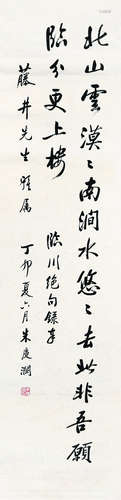 北山雲漠漠南澗水悠悠去此非吾願
臨分更上樓
臨川絕句録奉
藤井先生雅属
丁卯夏六月朱慶瀾